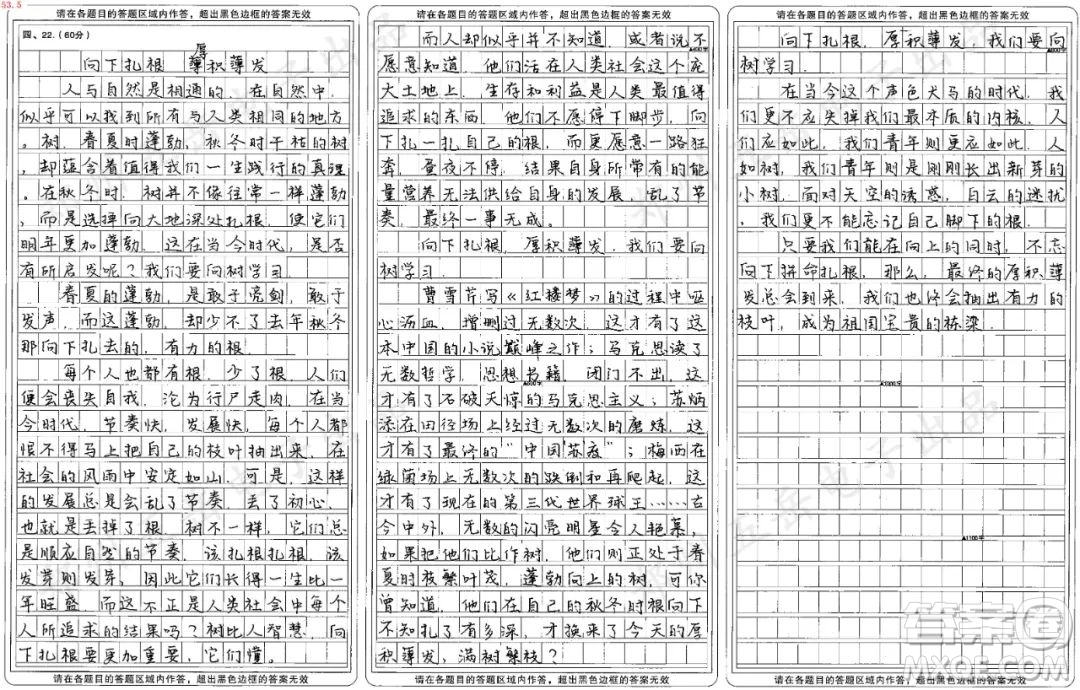 53.5
请在各题目的答题区域内作答，超出黑色边框的答案无效
四、22.（60分）
厚
向下扎根 薄积薄发
人与自然是相通的。在自然中，
似乎可以找到所有与人类相同的地方
。树，春夏时蓬勃，秋冬时干枯的树
，却蕴含着值得我们一生践行的真理
。在秋冬时，树并不像往常一样蓬勃
，而是选择向大地深处扎根，使它们
明年更加蓬勃。这在当今时代，是否
有所启发呢？我们要向树学习。
春夏的蓬勃，是敢于亮剑，敢于
发声，而这蓬勃，却少不了去年秋冬
那向下扎去的，有力的根。
每个人也都有根，少了根，人们
便会丧失自我，沦为行尸走肉。在当
今时代，节奏快，发展快，每个人都
恨不得马上把自己的枝叶抽出来，在
社会的风雨中安定如山，可是，这样
的发展总是会乱了节奏，丢了初心，
也就是去掉了根。树不一样，它们总
是顺应自然的节奏，该扎根扎根，该
发芽则发芽，因此它们长得一生比一
年旺盛。而这不正是人类社会中每个
人所追求的结果吗？树比人智慧，向
下扎根要更加重要，它们懂。
请在各题目的答题区域内作答，超出黑色边框的答案无效
请在各题目的答题区域内作答，超出黑色边框的答案无效
而人却似乎并不知道，或者说不
愿意知道。他们活在人类社会这个庞
大土地上，生存和利益是人类最值得
追求的东西，他们不愿停下脚步，向
下扎一扎自己的根，而更愿意一路狂
奔，昼夜不停，结果自身所常有的能
量营养无法供给自身的发展，乱了节
奏，最终一事无成。
向下扎根，厚积薄发，我们要向
树学习。
曹雪芹写《红楼梦》的过程中呕
心沥血，增删过无数次，这才有了这
本中国的小说巅峰之作；马克思读了
无数哲学，思想书籍，闭门不出，这
▲600字
才有了石破天惊的马克思主义；苏炳
添在田径场上经过无数次的磨炼，这
才有了最终的“中国苏夜”；梅西在
绿茵场上无数次的跌倒和再爬起，这
才有了现在的第三代世界球王……古
今中外，无数的闪亮明星令人艳慕，
如果把他们比作树，他们则正处于春
夏时枝繁叶茂，蓬勃向上的树，可你
曾知道，他们在自己的秋冬时根向下
不知扎了有多深，才换来了今天的厚
积薄发，满树繁枝？
请在各题目的答题区域内作答，超出黑色边框的答案无效
请在各题目的答题区域内作答，超出黑色边框的答案无效
向下扎根，厚积薄发，我们要向
树学习。
在当今这个声色犬马的时代，我
们更不应失掉我们最本质的内核，人
们应如此，我们青年则更应如此。人
如树，我们青年则是刚刚长出新芽的
小树，面对天空的诱惑，白云的迷扰
，我们更不能忘记自己脚下的根。
只要我们能在向上的同时，不忘
向下拼命扎根，那么，最终的厚积薄
发总会到来，我们也终会抽出有力的
枝叶，成为祖国宝贵的栋梁。
▲1000字
▲1100字
请在各题目的答题区域内作答，超出黑色边框的答案无效
答案圈
MXQE.COM